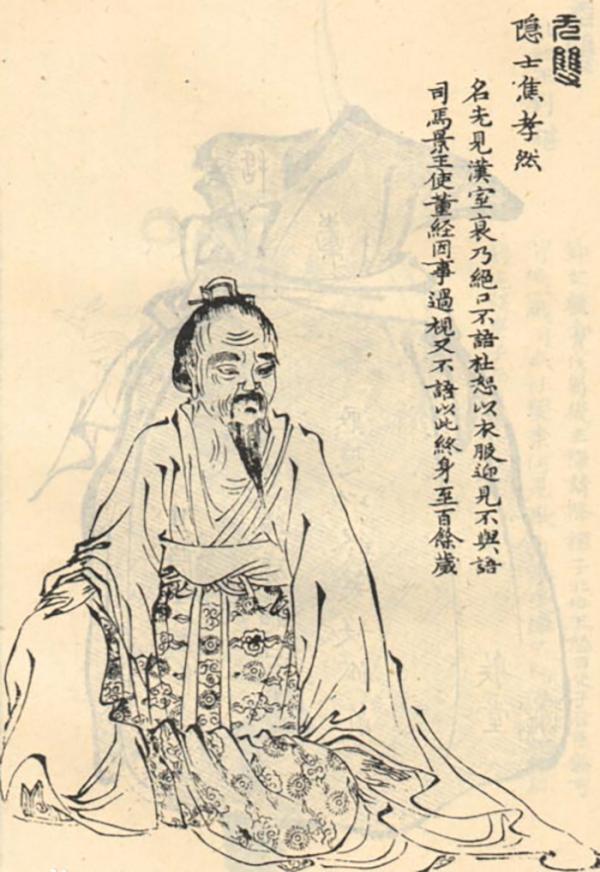 无雙
隱士焦孝然
名先見漢室衰乃絕口不語杜恕以衣服迎見不與語
司馬景王使董経因事過視又不語以此終身至百餘歲